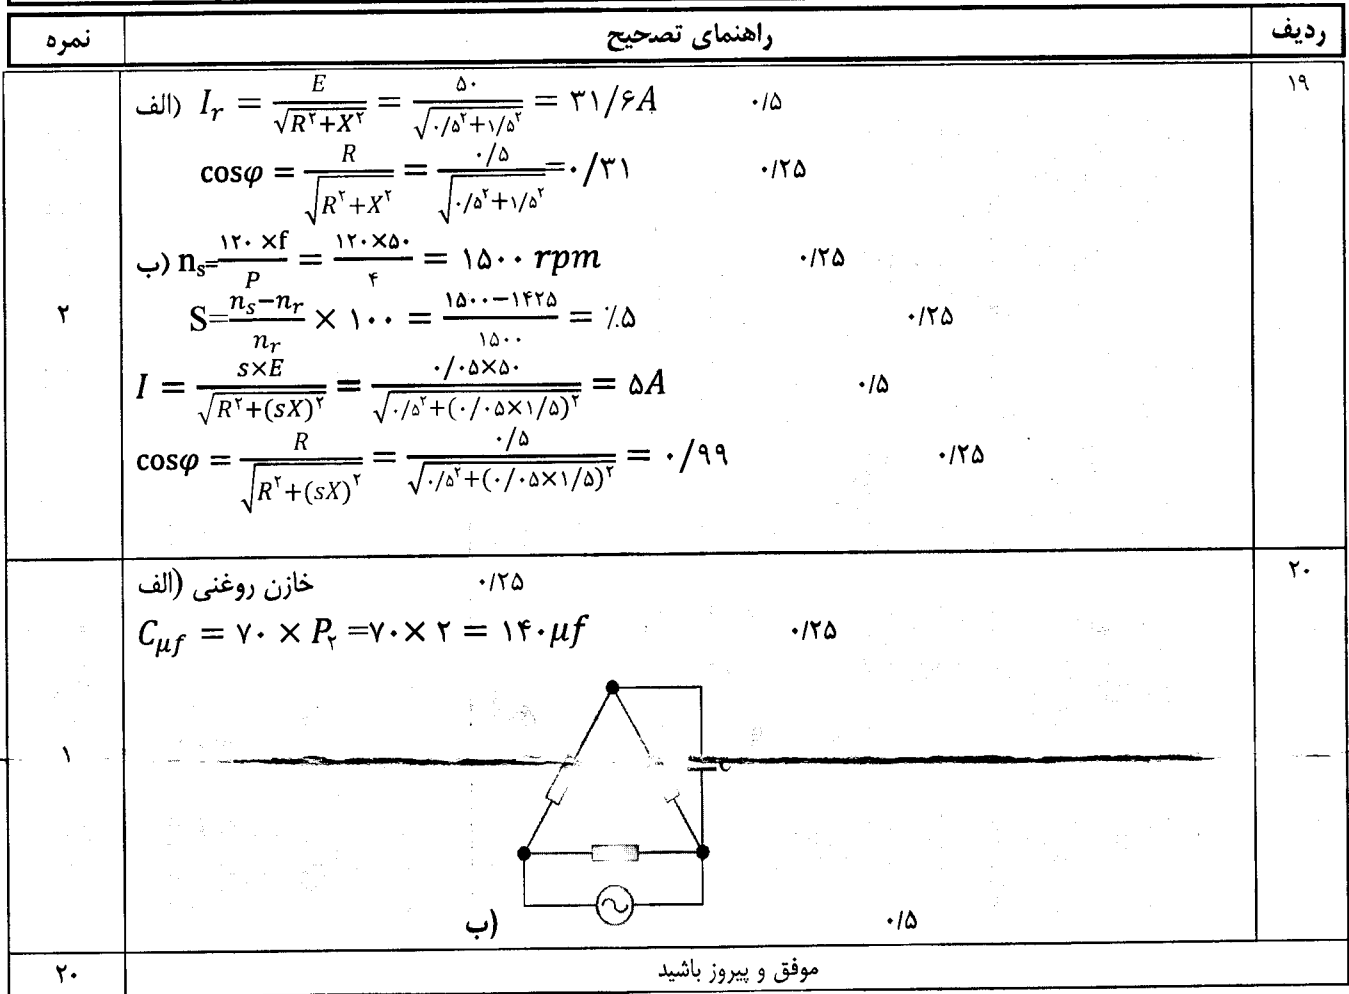 ردیف راهنمای تصحیح نمره
۱۹
الف) I_r = E / √(R^۲+X^۲) = ۵۰ / √(۰/۵^۲+۱/۵^۲) = ۳۱/۶A ۰/۵
cosφ = R / √(R^۲+X^۲) = ۰/۵ / √(۰/۵^۲+۱/۵^۲) = ۰/۳۱ ۰/۲۵
ب) n_s = ۱۲۰ ×f / P = ۱۲۰×۵۰ / ۴ = ۱۵۰۰ rpm ۰/۲۵
S = n_s−n_r / n_r × ۱۰۰ = ۱۵۰۰−۱۴۲۵ / ۱۵۰۰ = ٪۵ ۰/۲۵
۲
I = s×E / √(R^۲+(sX)^۲) = ۰/۰۵×۵۰ / √(۰/۵^۲+(۰/۰۵×۱/۵)^۲) = ۵A ۰/۵
cosφ = R / √(R^۲+(sX)^۲) = ۰/۵ / √(۰/۵^۲+(۰/۰۵×۱/۵)^۲) = ۰/۹۹ ۰/۲۵
۲۰
الف) خازن روغنی ۰/۲۵
C_μf = ۷۰ × P_۲ =۷۰× ۲ = ۱۴۰μf ۰/۲۵
۱
C
ب) ۰/۵
موفق و پیروز باشید ۲۰